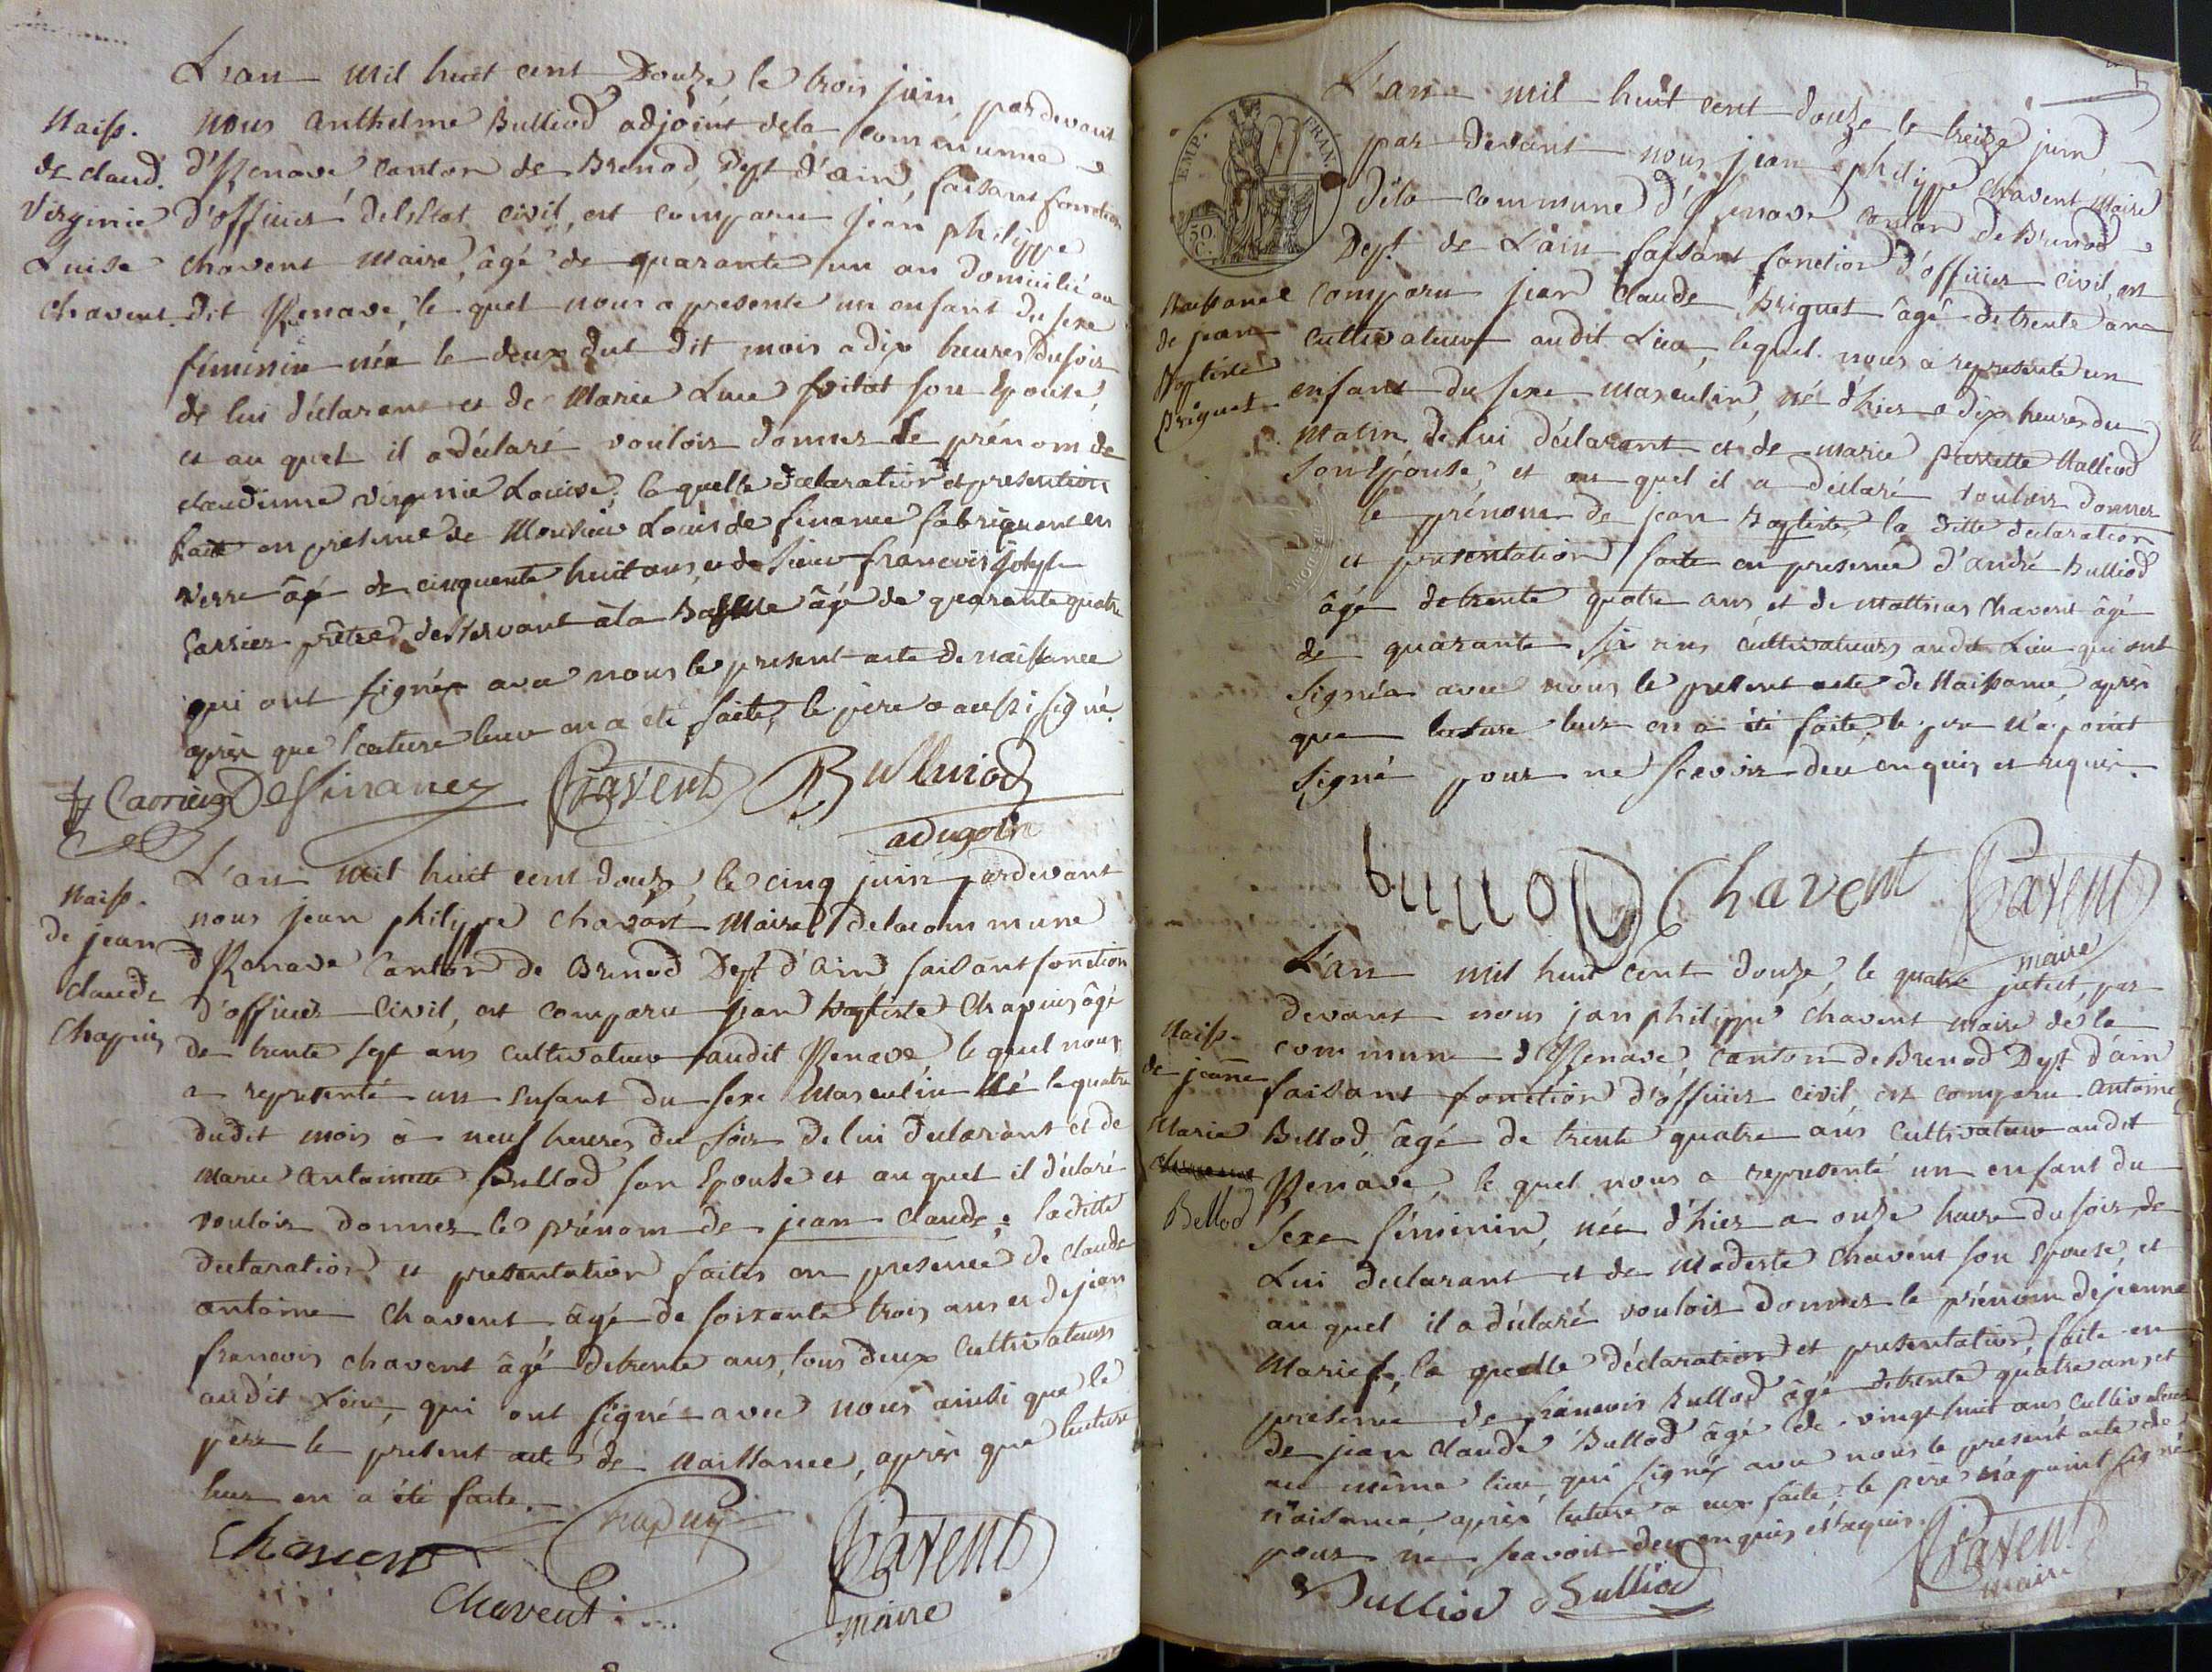 L'an mil huit cent Douze le trois juin, pardevant
nous anthelme Bulliod adjoint dela commune
d'Izenave canton de Brenod, Dept d'ain, faisant fonction
d'officier del'Etat civil, est comparu jean philippe
chavent Maire, âgé de quarante un an domicilié au
dit Izenave, le quel nous a presenté un enfant du sexe
féminin née le deux dut dit mois a dix heures du soir
de lui déclarant et de Marie Luce son Epouse,
et au quel il a déclaré vouloir donner le prénom de
claudinne virginie Louise, la quelle déclaration et presention
faite en presence de Monsieur Louis de finance fabriquant en
verre âgé de cinquante huit ans, et de sieur francois joseph
Carrier prêtre desservant à la âgé de quarante quatre
qui ont signés avec nous le present acte de naissance
après que lecture leur en a été faite, le père a aussi signé.
Naiss.
de claud.
Virginie
Luise
chavent.
Carrier Definance Chavent Bulliod
adjoin
L'an mil huit cent douze, le cinq juin pardevant
nous jean philippe chavent Maire dela commune
d'Izenave Canton de Brenod Dept d'Ain faisant fonction
d'officier civil, est comparu jean baptiste Chapuis âgé
de trente sept ans cultivateur audit Izenave le quel nous
a representé un enfant du sexe Masculin né le quatre
dudit mois à neuf heures du soir de lui declarant et de
Marie antoinette Bullod son Epouse et au quel il déclaré
vouloir donner le prénom de jean claude; laditte
declaration et presentation faites en presence de claude
antoine chavent âgé de soixante trois ans et de jean
francois chavent âgé de trente ans, tous deux cultivateurs
audit Lieu, qui ont signé avec nous ainsi que le
père le present acte de naissance, après que lecture
leur en a été faite.
Naiss.
de jean
claude
Chapuis
Chavent Chapuy Chavent
Chavent maire
EMP. FRAN.
50 C.
L'an mil huit cent douze le treize juin
par devant nous jean philippe chavent Maire
déla commune d'Izenave canton de Brenod
Dept de L'ain faisant fonction d'officier civil, est
comparu jean claude Briguet âgé de trente ans
cultivateur audit Lieu, lequel nous a representé un
enfant du sexe masculin, né d'hier a dix heures du
matin de lui déclarant et de marie
son Epouse, et au quel il a déclaré vouloir donner
le prénom de jean baptiste, la ditte declaration
et presentation faite en presence d'andré Bulliod
âgé de trente quatre ans et de mathieu chavent âgé
de quarante six ans cultivateurs audit Lieu qui ont
signés avec nous le present acte de Naissance, après
que lecture leur en a été faite, le père n'a point
signé pour ne scavoir deu enquis et requis.
Naissance
de jean
Baptiste
Briguet
bulliod Chavent Chavent
maire
L'an mil huit cent douze, le quatre juliet, par
devant nous jan philippe chavent maire de la
commune d'Izenave, canton de Brenod Dept d'ain
faisant fonction d'officier civil est comparu antoine
Bullod, âgé de trente quatre ans cultivateur audit
Izenave, le quel nous a representé un enfant du
sexe féminin, née d'hier a onze heure du soir de
Lui declarant et de Modeste chavent son Epouse, et
au quel il a déclaré vouloir donner le prénom de jeanne
Marie, la quelle déclaration et presentation, faite en
presence de francois Bullod âgé de trente quatre ans et
de jean claude Bullod âgé de vingt huit ans cultivateurs
au même lieu, qui signés avec nous le present acte de
naisance, après lecture a eux faite, le père n'a point signé
pour ne scavoir deu enquis et requis.
Naiss.
de jeanne
Marie
Bellod
Bulliod Bulliod Chavent
maire